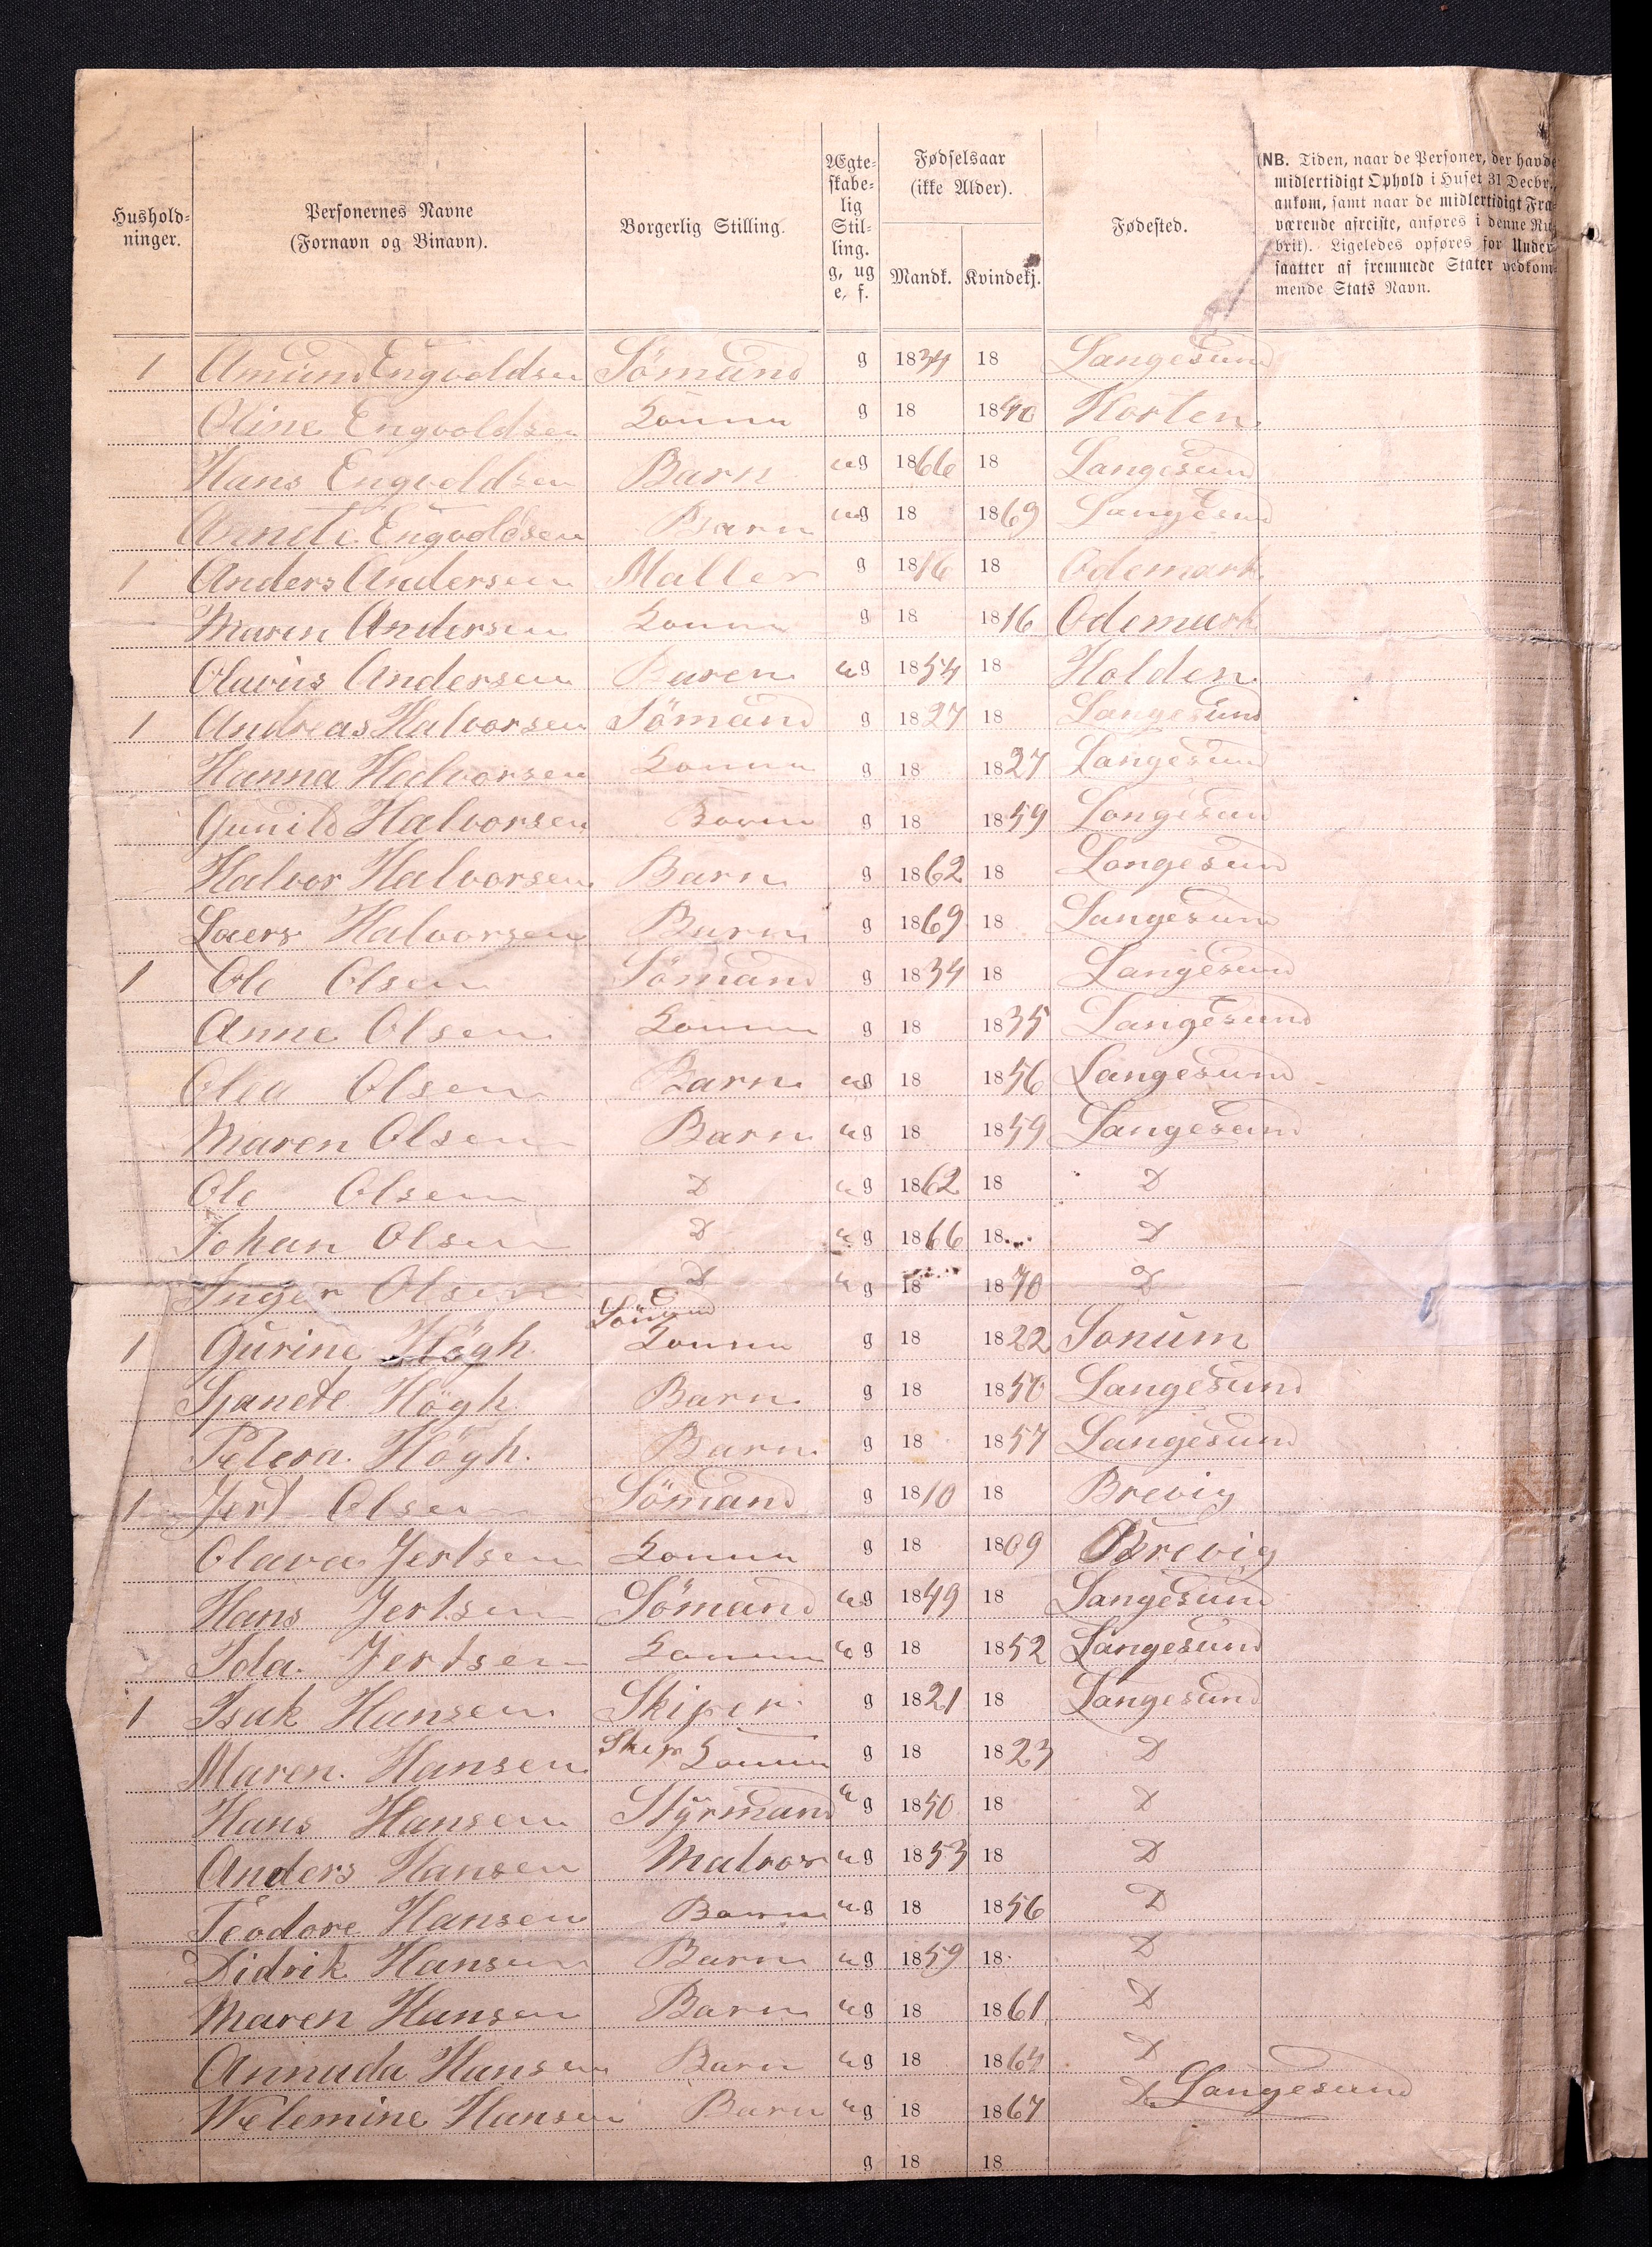 Hushold-
ninger.
Personernes Navne
(Fornavn og Binavn).
Borgerlig Stilling.
Ægte-
skabe-
lig
Stil-
ling.
g, ug
e, f.
Fødselsaar
(ikke Alder).
Mandk. Kvindekj.
Fødested.
(NB. Tiden, naar de Personer, der havde
midlertidigt Ophold i Huset 31 Decbr.,
ankom, samt naar de midlertidigt Fra-
værende afreiste, anføres i denne Ru-
brik). Ligeledes opføres for Under-
saatter af fremmede Stater vedkom-
mende Stats Navn.
1 Amund Engvoldsen Sömand g 1834 18 Langesund
Oline Engvoldsen Konna g 18 1840 Horten
Hans Engvoldsen Barn ug 1866 18 Langesund
Engvoldsen Barn ug 18 1869 Langesund
1 Anders Andersen Maller g 1816 18 Odemark
Maren Andersen Konna g 18 1816 Odemark
Olavus Andersen Baren ug 1854 18 Holden
1 Andreas Halvorsen Sömand g 1827 18 Langesund
Hanna Halvorsen Konna g 18 1827 Langesund
Gunild Halvorsen Barn g 18 1859 Langesund
Halvor Halvorsen Barn g 1862 18 Langesund
Laers Halvorsen Barn g 1869 18 Langesund
1 Ole Olsen Sömand g 1834 18 Langesund
Anne Olsen Konna g 18 1835 Langesund
Olea Olsen Barn ug 18 1856 Langesund
Maren Olsen Barn ug 18 1859 Langesund
Ole Olsen D ug 1862 18 D
Johan Olsen D ug 1866 18 D
Inger Olsen D ug 18 1870 D
Sömand
1 Gurine Högh Konna g 18 1822 Sonum
Högh Barn g 18 1850 Langesund
Petera Högh. Barn g 18 1857 Langesund
1 Jert Olsen Sömand g 1810 18 Brevig
Olava Jertsen Konna g 18 1809 Brevig
Hans Jertsen Sömand ug 1849 18 Langesund
Ida Jertsen Konna ug 18 1852 Langesund
1 Isak Hansen Skiper g 1821 18 Langesund
Maren Hansen Skip Konna g 18 1823 D
Hans Hansen Styrmand ug 1850 18 D
Anders Hansen Matros ug 1853 18 D
Teodore Hansen Barn ug 18 1856 D
Didrik Hansen Barn ug 1859 18 D
Maren Hansen Barn ug 18 1861 D
Hansen Barn ug 18 1864 D
Welemine Hansen Barn ug 18 1867 D Langesund
g 18 18